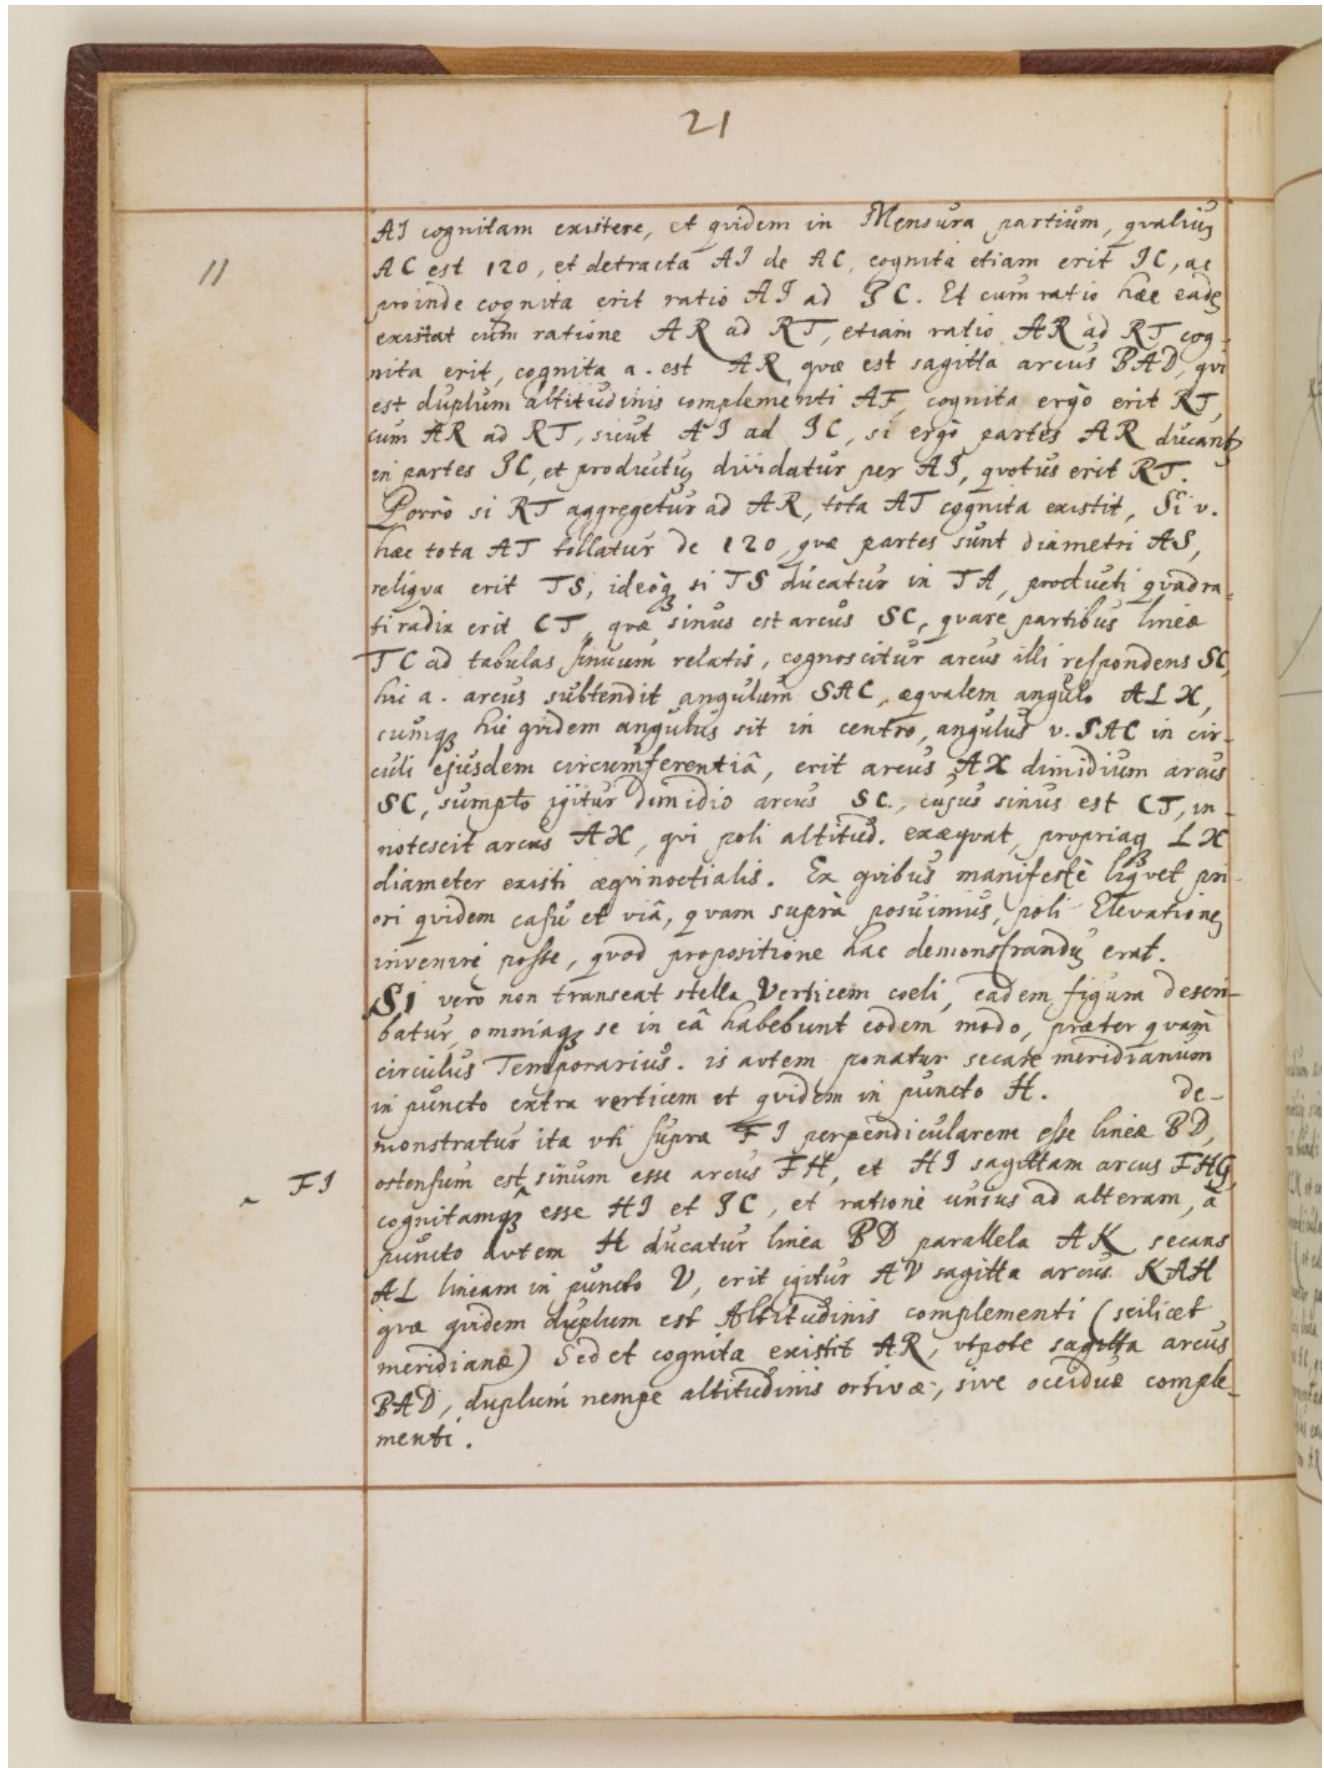 21
AI cognitam existere, et qvidem in Mensura partium, qvaliuʒ
11
AC est 120, et detracta AI de AC, cognita etiam erit IC, ac
proinde cognita erit ratio AI ad IC. Et cum ratio hæc eadeʒ
existat cum ratione AR ad RT, etiam ratio AR ad RT cog-
nita erit, cognita a. est AR, qvæ est sagitta arcus BAD, qvi
est duplum altitudinis complementi AF, cognita ergò erit RT,
cum AR ad RT, sicut AI ad IC, si ergò partes AR ducantʒ
in partes IC, et productuʒ dividatur per AI, qvotus erit RT.
Porrò si RT aggregetur ad AR, tota AT cognita existit, Si v.
hæc tota AT tollatur de 120, qvæ partes sunt diametri AS,
reliqva erit TS, ideoqʒ si TS ducatur in TA, producti qvadra-
ti radix erit CT, qvæ sinus est arcus SC, qvare partibus lineæ
TC ad tabulas sinuum relatis, cognoscitur arcus illi respondens SC,
hic a. arcus subtendit angulum SAC, æqvalem angulo ALX,
cumqʒ hic qvidem angulus sit in centro, angulus v. SAC in cir-
culi ejusdem circumferentiâ, erit arcus AX dimidium arcus
SC, sumpto igitur dimidio arcus SC, cujus sinus est CT, in-
notescit arcus AX, qvi poli altitud. exæqvat, propriaqʒ LX
diameter existi æqvinoctialis. Ex qvibus manifestè liqvet pri-
ori qvidem casu et viâ, qvam suprà posuimus, poli Elevationeʒ
invenire posse, qvod propositione hac demonstranduʒ erat.
Si verò non transeat stella Verticem coeli, eadem figura descri-
batur, omniaqʒ se in eâ habebunt eodem modo, præter qvam
circulus Temporarius. is autem ponatur secare meridianum
in puncto extra verticem et qvidem in puncto H. de-
monstratur ita vti supra FI perpendicularem esse lineæ BD,
^ FI
ostensum est ^ sinum esse arcus FH, et HI sagittam arcus FHG,
cognitamqʒ esse HI et IC, et ratione unius ad alteram, à
puncto autem H ducatur linea BD parallela AK secans
AL lineam in puncto V, erit igitur AV sagitta arcus KAH
qvæ qvidem duplum est Altitudinis complementi (scilicet
meridianæ) Sed et cognita existit AR, vtpote sagitta arcus
BAD, duplum nempe altitudinis ortivæ, sive occiduæ comple-
menti.